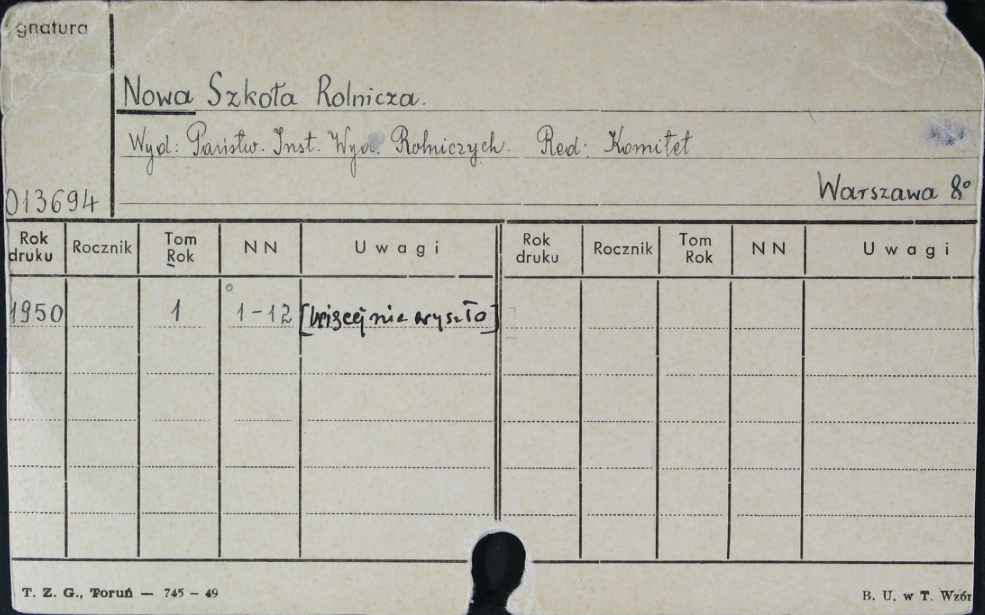 gnatura
Nowa Szkoła Rolnicza.
Wyd: Państw. Inst. Wyd. Rolniczych. Red: Komitet
013694 Warszawa 8°
Rok druku Rocznik Tom Rok NN Uwagi Rok druku Rocznik Tom Rok NN Uwagi
1950 1 1-12 [więcej nie wyszło]
T. Z. G., Toruń — 745 – 49 B. U. w T. Wzór